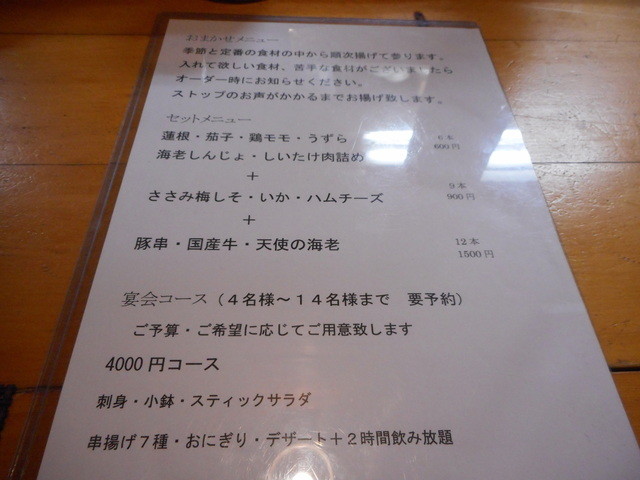 おまかせメニュー
季節と定番の食材の中から順次揚げて参ります。
入れて欲しい食材、苦手な食材がございましたら
オーダー時にお知らせください。
ストップのお声がかかるまでお揚げ致します。
セットメニュー
蓮根・茄子・鶏モモ・うずら 6本
海老しんじょ・しいたけ肉詰め 600円
＋
9本
ささみ梅しそ・いか・ハムチーズ 900円
＋
豚串・国産牛・天使の海老 12本
1500円
宴会コース（４名様～１４名様まで 要予約）
ご予算・ご希望に応じてご用意致します
4000円コース
刺身・小鉢・スティックサラダ
串揚げ７種・おにぎり・デザート＋２時間飲み放題